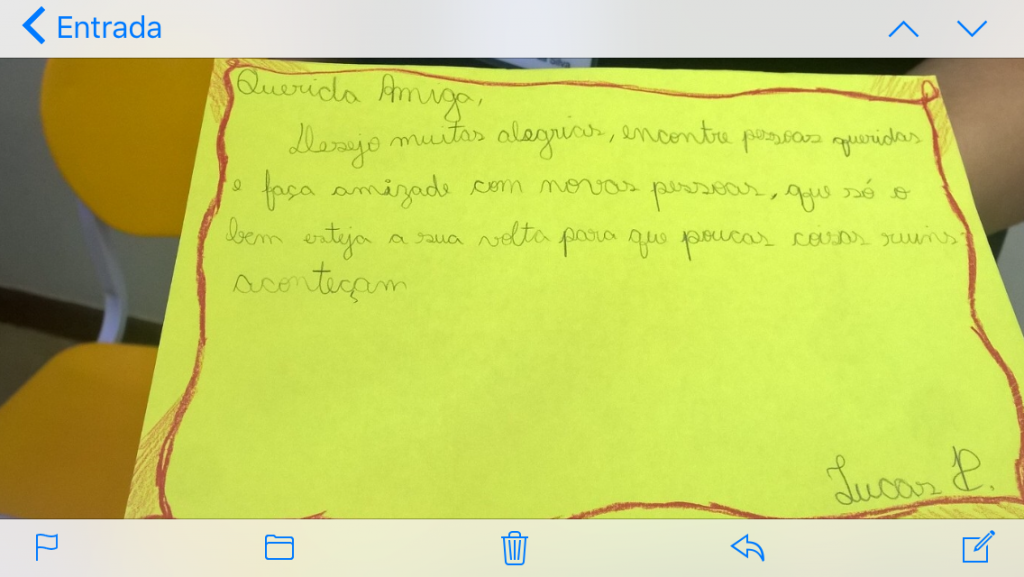 Entrada
Querida Amiga,
Desejo muitas alegrias, encontre pessoas queridas
e faça amizade com novas pessoas, que só o
bem esteja a sua volta para que poucas coisas ruins
aconteçam
Lucas P.